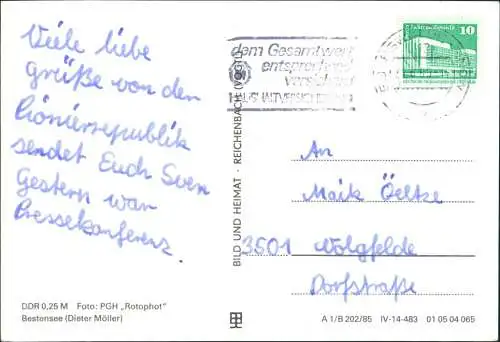 Viele liebe
Grüße von der
Pionierrepublik
sendet Euch Sven
Gestern war
Pressekonferenz
DDR 0,25 M Foto: PGH „Rotophot"
Bestensee (Dieter Möller)
BILD UND HEIMAT · REICHENBACH (VOGTL)
dem Gesamtwert
entsprechend
versichert
HAUSHALTVERSICHERUNG
10
An
Maik Oeltze
3501 Wolgfelde
Dorfstraße
A 1/B 202/85 IV-14-483 01 05 04 065